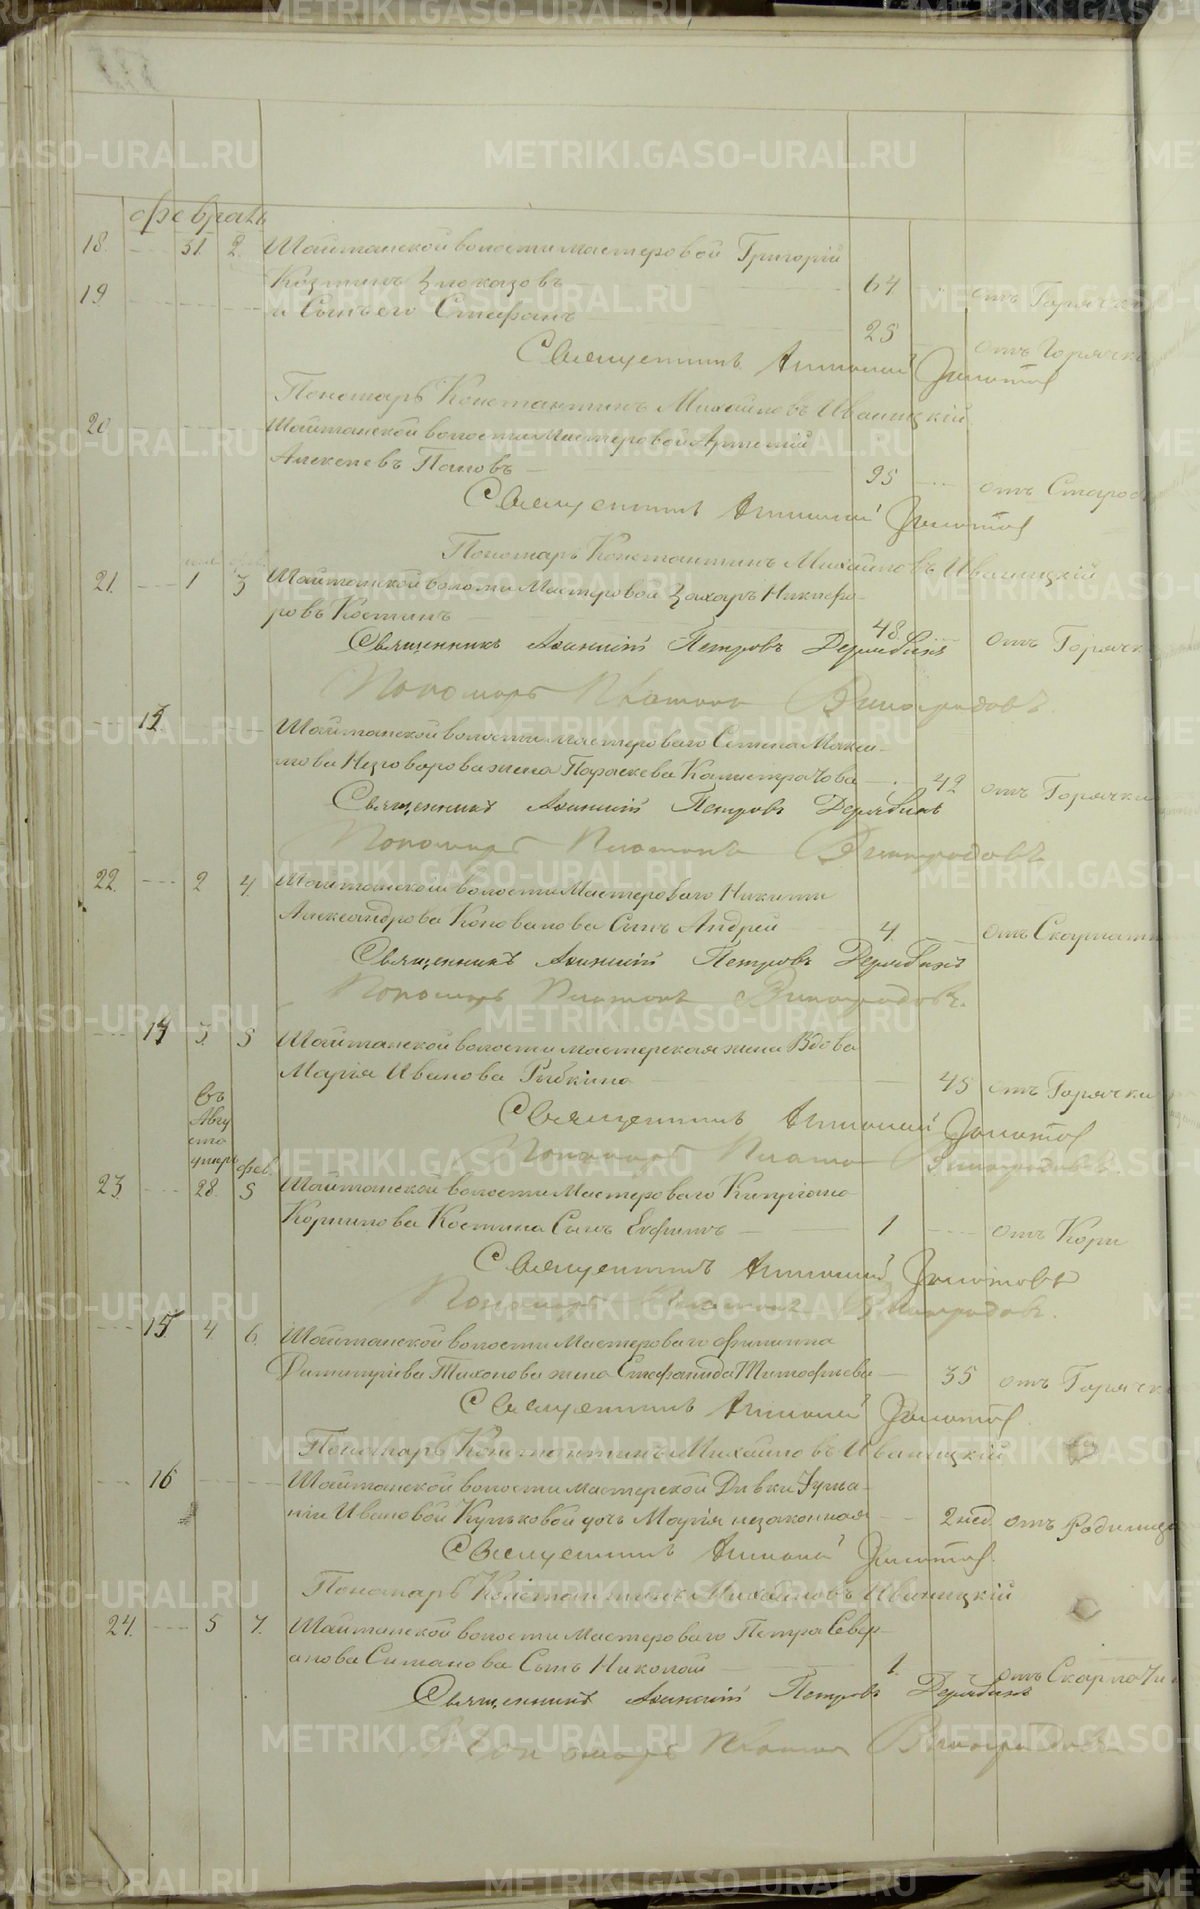 февраль
18. 31. 2. Шайтанской волости мастеровой Григорій
Козминъ Злоказовъ 64 отъ Горячки
19. и Сынъ его Стефанъ 25 отъ Горячки
Священникъ Антоній Золотов
Пономарь Константинъ Михайловъ Иваницкій
20. Шайтанской волости Мастеровой Артемій
Алексеевъ Поповъ 95 отъ Старос
Священникъ Антоній Золотов
Пономарь Константинъ Михайловъ Иваницкій
21. 1 3 Шайтанской волости Мастеровой Захаръ Никифо-
ровъ Костинъ 48. отъ Горячк
Священникъ Петровъ Дерябинъ
Пономарь Платонъ Виноградовъ.
13. Шайтанской волости мастероваго Семена Макси-
мова Незговорова жена Параскева Калистратова 42 отъ Горячки
Священникъ Петровъ Дерябинъ
Пономарь Платонъ Виноградовъ
22. 2 4. Шайтанской волости Мастероваго Никиты
Александрова Коновалова Сынъ Андрей 4. отъ Скарлати
Священникъ Петровъ Дерябинъ
Пономарь Платонъ Виноградовъ.
14 3. 5 Шайтанской волости мастерская жена Вдова
Марья Иванова Рыбкина 45 отъ Горячки
Священникъ Антоній Золотов
Пономарь Платонъ Виноградовъ.
Въ
Авгу
сто
умеръ фев.
23. 28. 5 Шайтанской волости Мастероваго Кипріана
Корнилова Костина Сынъ Евфимъ 1 отъ Кори
Священникъ Антоній Золотовъ
Пономарь Платонъ Виноградовъ.
15 4. 6. Шайтанской волости Мастероваго Филиппа
Димитріева Тихонова жена Стефанида Тимофеева 35 отъ Горячк
Священникъ Антоній Золотов.
Пономарь Константинъ Михайловъ Иваницкій
16 Шайтанской волости мастерской Девки Улья-
ніи Ивановой Кульковой дочь Марія незаконная 2 нед. отъ Родимца
Священникъ Антоній Золотов.
Пономарь Константинъ Михайловъ Иваницкій
24. 5 7. Шайтанской волости Мастероваго Петра Север-
анова Ситанова Сынъ Николай 1. отъ Скарлати
Священникъ Петровъ Дерябинъ
Пономарь Платонъ Виноградовъ
METRIKI.GASO-URAL.RU